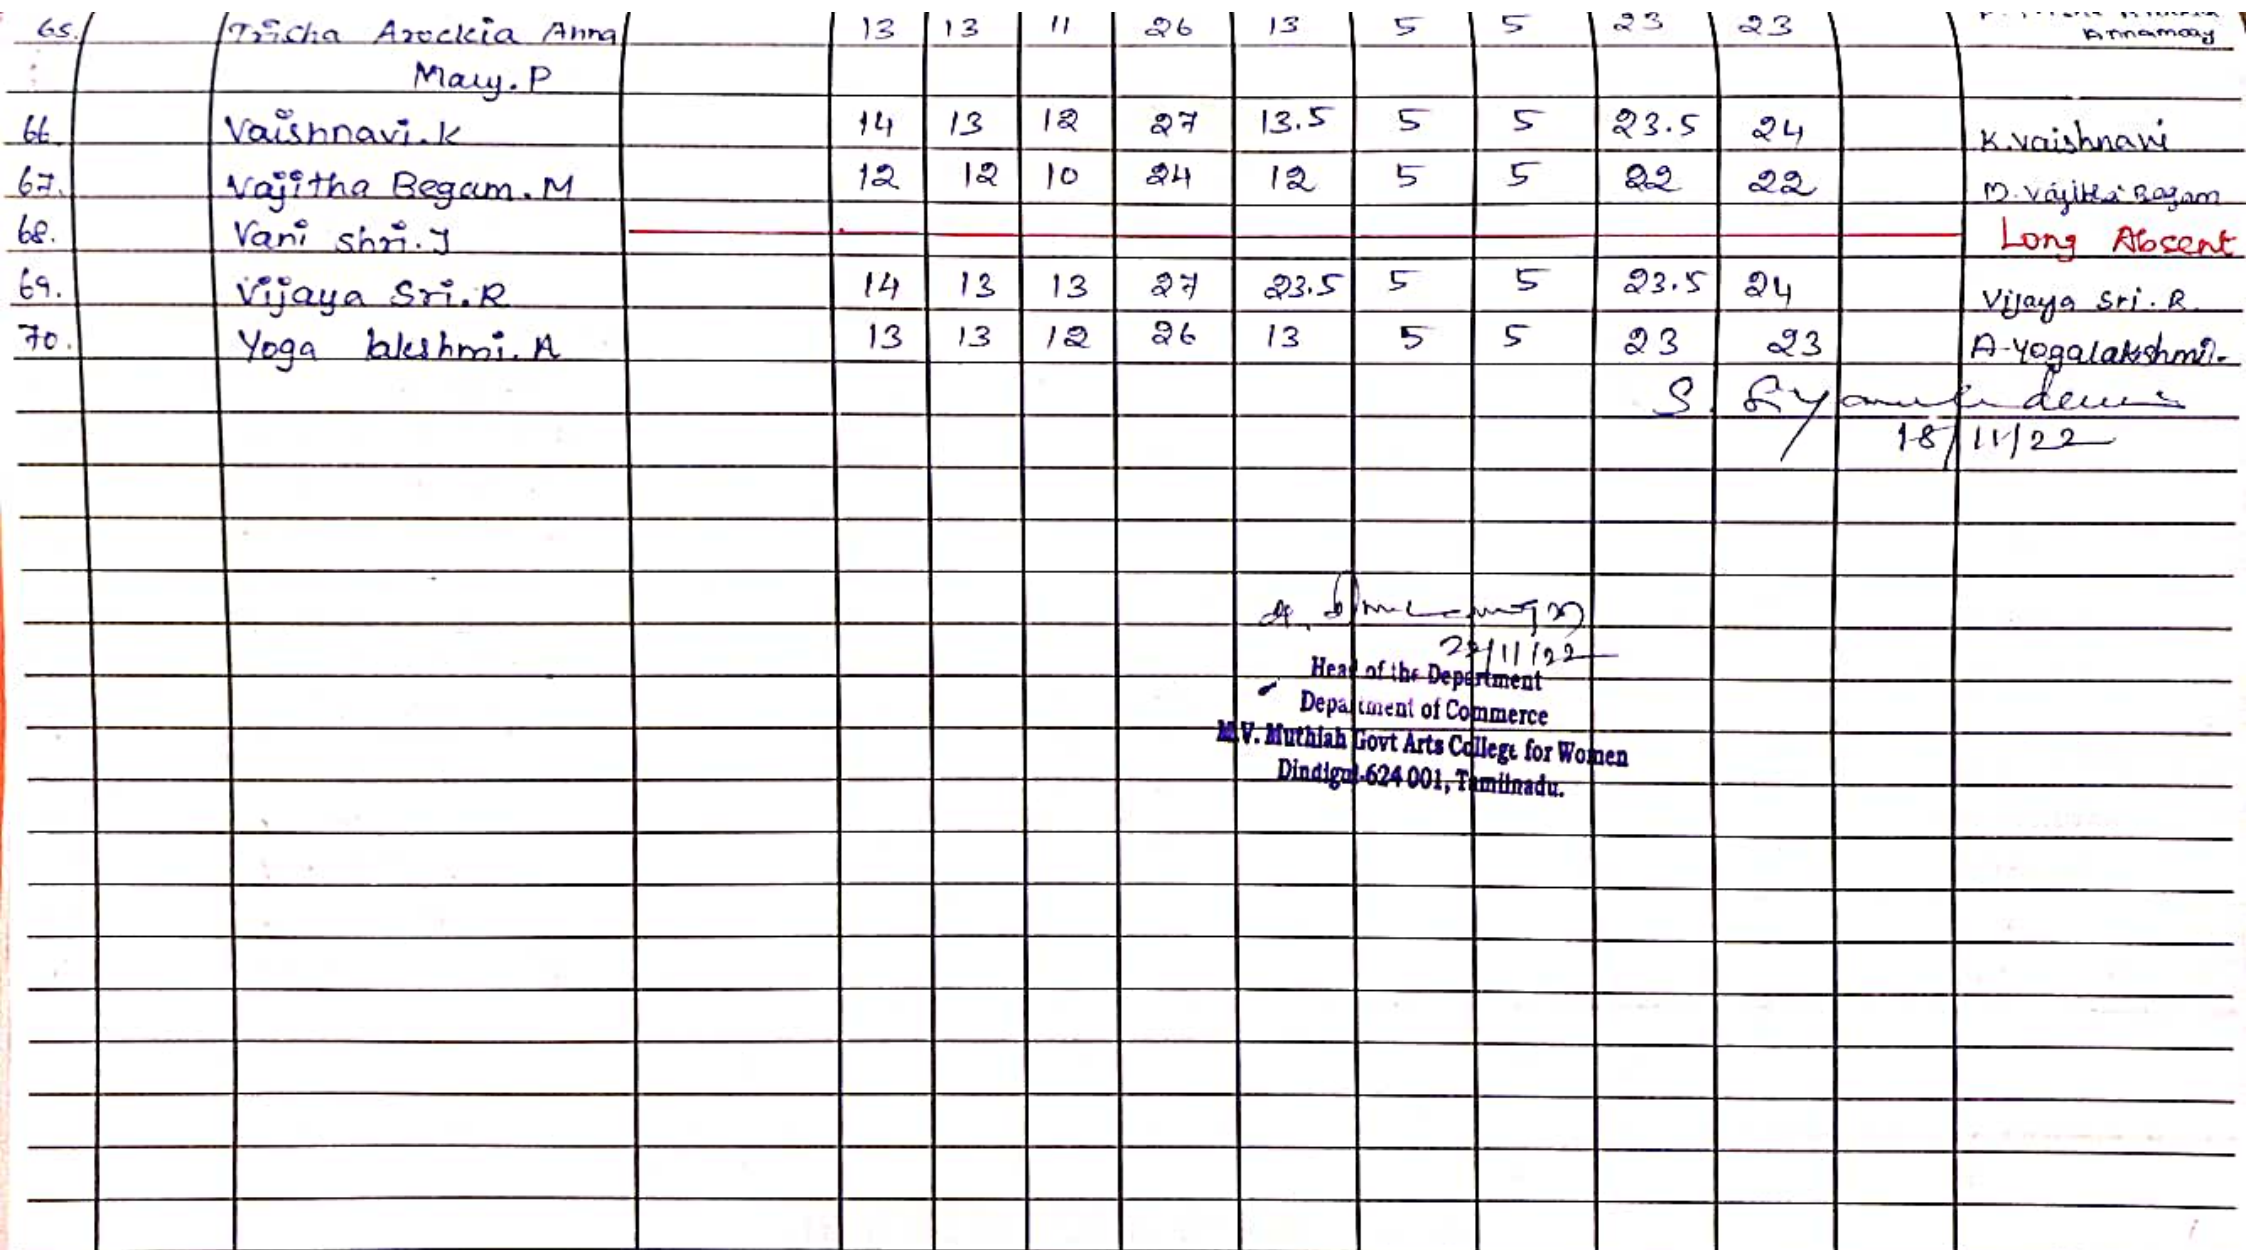 65. Tricha Arockia Anna 13 13 11 26 13 5 5 23 23
Annamary
Mary. P
66 Vaishnavi. K 14 13 12 27 13.5 5 5 23.5 24 K. Vaishnavi
67. Vajitha Begam. M 12 12 10 24 12 5 5 22 22 M. Vajitha Begam
68. Vani shri. J Long Absent
69. Vijaya Sri. R 14 13 13 27 23.5 5 5 23.5 24 Vijaya Sri. R
70. Yoga lakshmi. A 13 13 12 26 13 5 5 23 23 A. Yogalakshmi
S.
18/11/22
/11/22
Head of the Department
Department of Commerce
M.V. Muthiah Govt Arts College for Women
Dindigul-624 001, Tamilnadu.